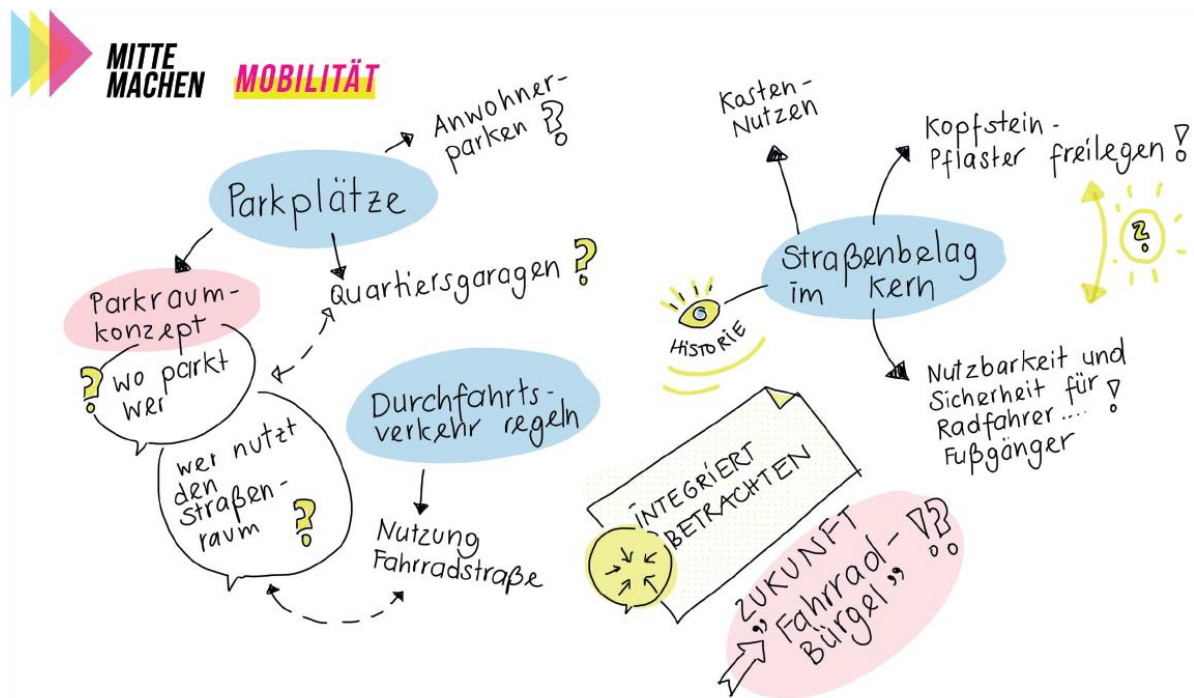 MITTE
MACHEN
MOBILITÄT
Anwohner-
parken ?
Parkplätze
Quartiersgaragen ?
Parkraum-
konzept
? wo parkt
wer
wer nutzt
den
straßen-
raum ?
Durchfahrts-
verkehr regeln
Nutzung
Fahrradstraße
Kasten-
Nutzen
Kopfstein-
Pflaster freilegen !
?
Straßenbelag
im Kern
HISTORIE
Nutzbarkeit und
Sicherheit für
Radfahrer .... !
Fußgänger
INTEGRIERT
BETRACHTEN
„ZUKUNFT
Fahrrad- !?
Bürgel”